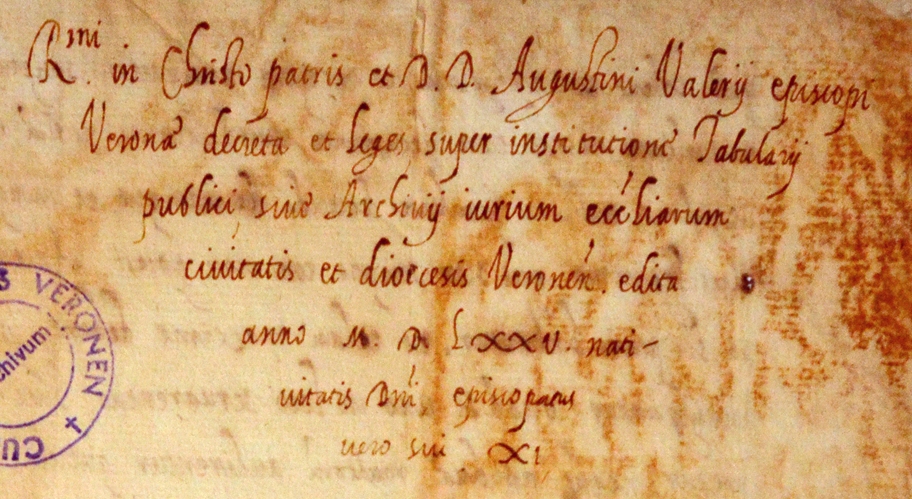 Rmi. in Christo patris et D. D. Augustini Valerij episcopi
Veronæ decreta et leges super institutione Tabularij
publici, sive Archivij iurium eccliarum
civitatis et dioecesis Veronen. edita
anno M. D. LXXV. nati-
vitatis Dni, episcopatus
vero sui XI
S VERONEN + CU
chivum